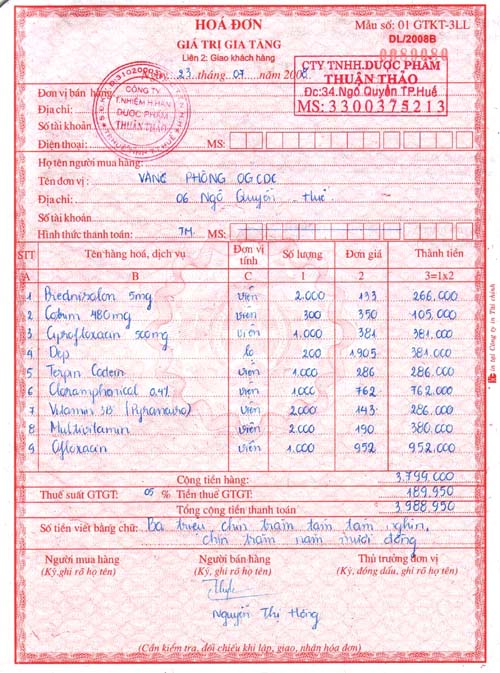 HOÁ ĐƠN
GIÁ TRỊ GIA TĂNG
Liên 2: Giao khách hàng
Mẫu số: 01 GTKT-3LL
DL/2008B
0089080
Ngày 23 tháng 07 năm 2008
CTY TNHH.DƯỢC PHẨM
THUẬN THẢO
Đc:34.Ngô Quyền TP.Huế
MS: 3300375213
CÔNG TY
T.NHIỆM H.HẠN
DƯỢC PHẨM
THUẬN THẢO
Đơn vị bán hàng
Địa chỉ:
Số tài khoản
Điện thoại: MS:
Họ tên người mua hàng:
Tên đơn vị: VĂNG PHÒNG OGCDC
Địa chỉ: 06 Ngô Quyền Huế
Số tài khoản
Hình thức thanh toán: TM. MS:
STT Tên hàng hoá, dịch vụ Đơn vị tính Số lượng Đơn giá Thành tiền
A B C 1 2 3=1x2
1 Prednisolon 5mg viên 2.000 133 266.000
2 480mg viên 300 350 105.000
3 Ciprofloxacin 500mg viên 1.000 381 381.000
4 Dep lọ 200 1.905 381.000
5 Terpin Codein viên 1.000 286 286.000
6 Cloramphenical 0,4% viên 1.000 762 762.000
7 Vitamin 3B viên 2.000 143 286.000
8 Multivitamin viên 2.000 190 380.000
9 Ofloxacin viên 1.000 952 952.000
Cộng tiền hàng: 3.799.000
Thuế suất GTGT: 05 % Tiền thuế GTGT: 189.950
Tổng cộng tiền thanh toán: 3.988.950
Số tiền viết bằng chữ: Ba triệu, chín trăm tám tám nghìn,
chín trăm năm mươi đồng
Người mua hàng Người bán hàng Thủ trưởng đơn vị
(Ký, ghi rõ họ tên) (Ký, ghi rõ họ tên) (Ký, đóng dấu, ghi rõ họ tên)
Nguyễn Thị Hồng
(Cần kiểm tra, đối chiếu khi lập, giao, nhận hóa đơn)